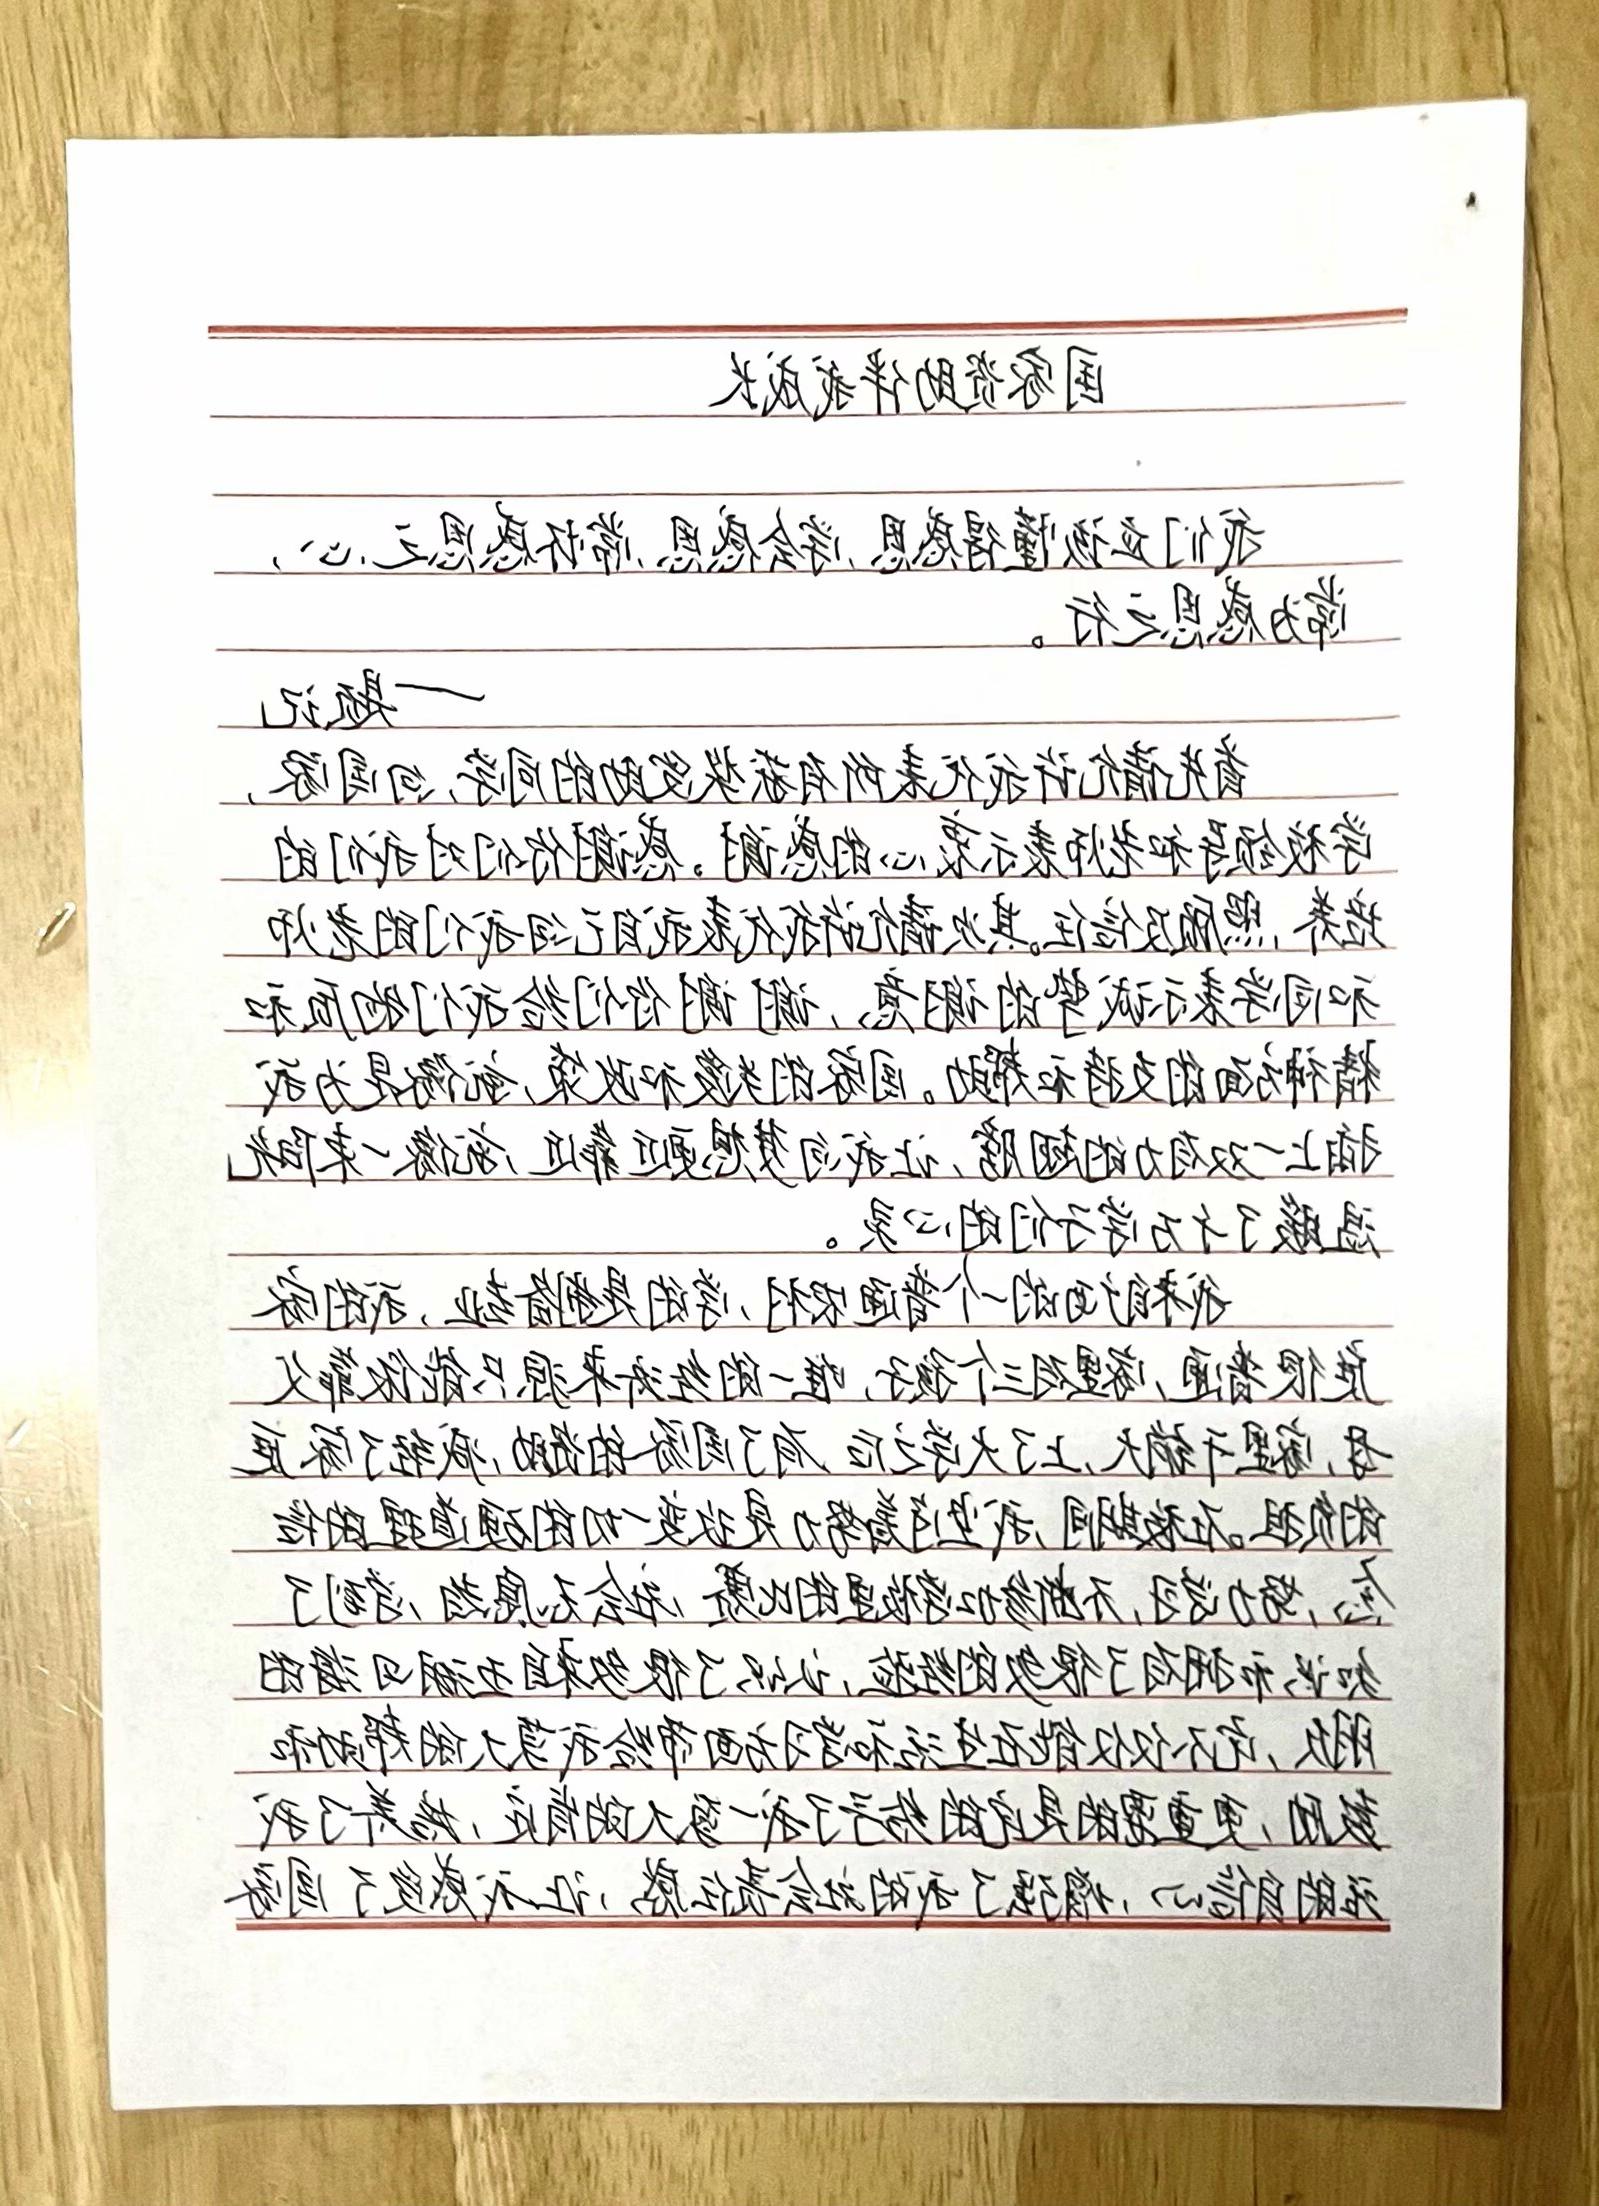 国家资助伴我成长
我们应该懂得感恩，学会感恩，常怀感恩之心，
常为感恩之行。
一题记
首先请允许我代表所有获奖资助的同学，向国家，
学校领导和老师表示衷心的感谢。感谢你们对我们的
培养，照顾及信任。其次请允许我代表我自己向我们的老师
和同学表示诚挚的谢意，谢谢你们给我们物质和
精神方面的支持和帮助。国家的关激和政策，就像是为我
插上一双有力的翅膀，让我向梦想更近靠近，就像一束阳光
温暖了千万学子们的心灵。
我来自广西的一个普通农村，学的是制药专业，我的家
庭很普通，家里有三个孩子，唯一的经济来源只能依靠父
母，家里干输大，上了大学之后，有了国家的资助，减轻了家庭
的负担。在校期间，我坚信着努力是改变一切的硬道理的信
念，努力学习，不断参加学校里的比赛，社会志愿者，学到了
知识和拥有了很多的经验，认识了很多来自五湖四海的
朋友，它不仅仅能在生活和学习方面带给我莫大的帮助和
鼓励，更重要的是它的给予了我一莫大的肯定，培养了我
活的自信心，增强了我的社会责任感，让我感受了国家